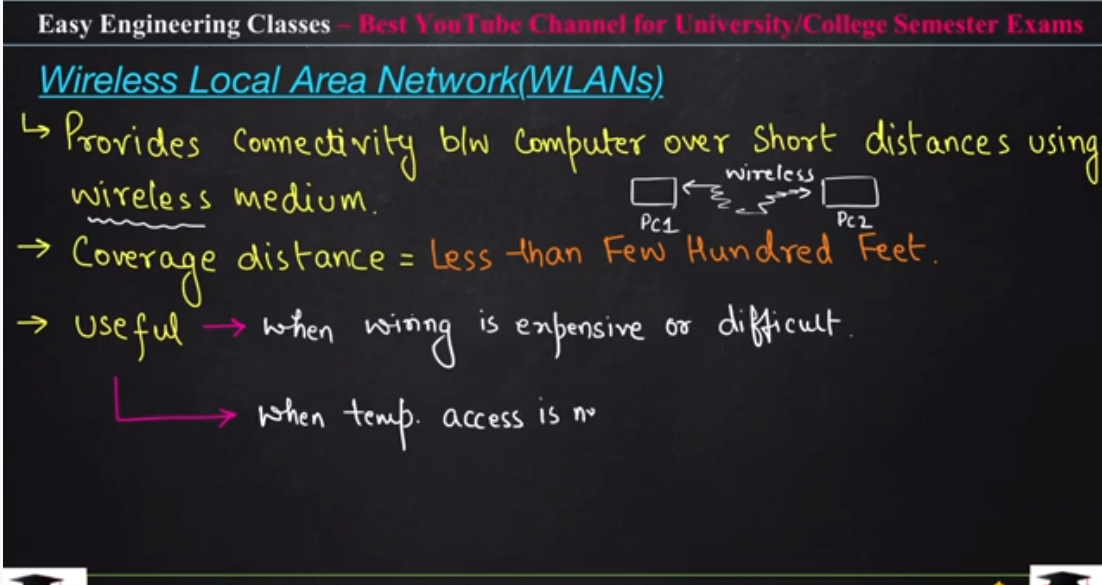 Easy Engineering Classes – Best YouTube Channel for University/College Semester Exams
Wireless Local Area Network(WLANs)
↳ Provides Connectivity b/w Computer over Short distances using
wireless medium.
wireless
PC1 PC2
→ Coverage distance = Less than Few Hundred Feet.
→ Useful → when wiring is expensive or difficult.
when temp. access is